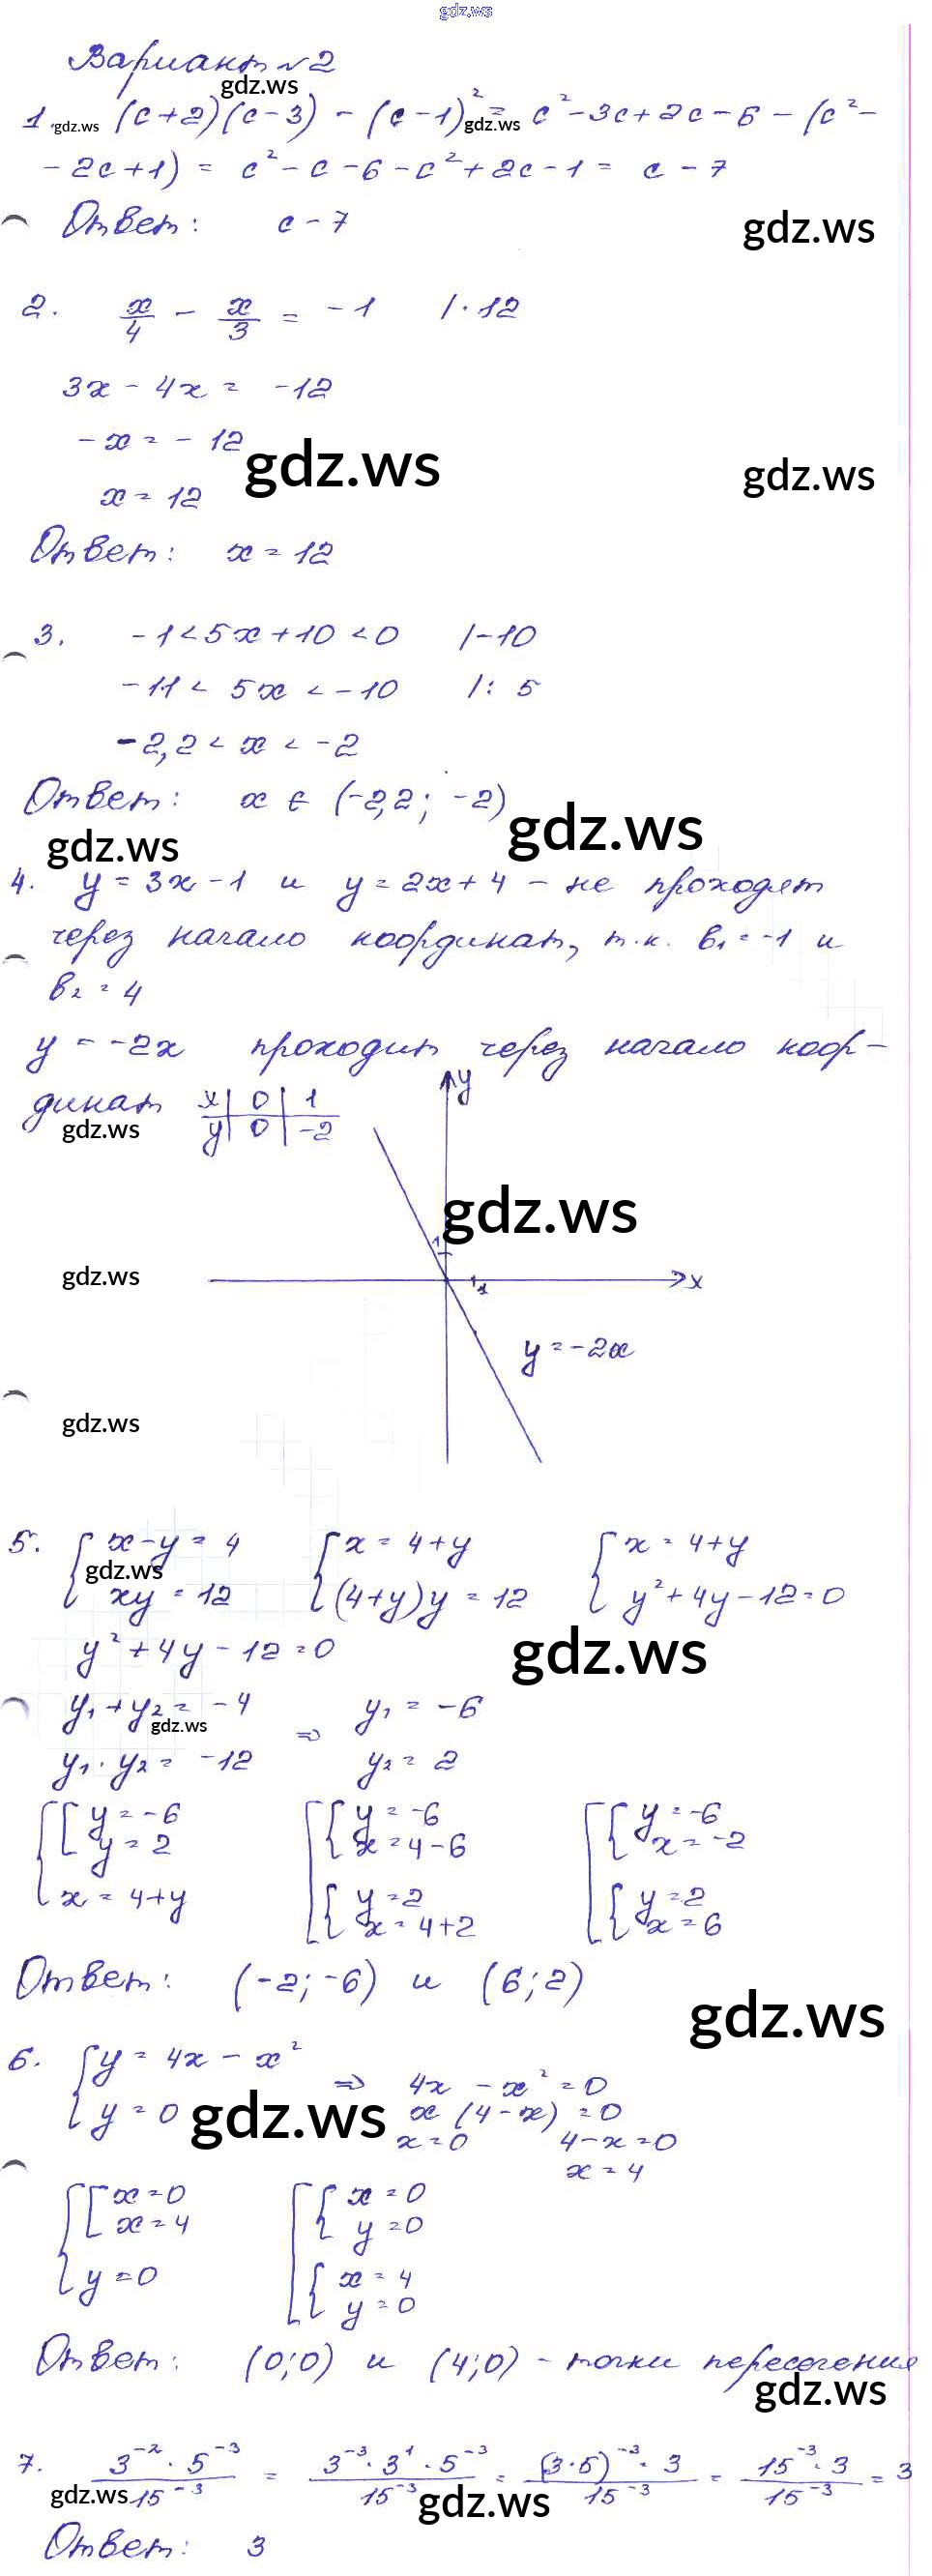 gdz.ws
Вариант №2
gdz.ws
1. (c+2)(c-3) - (c-1)² = c² - 3c + 2c - 6 - (c² -
gdz.ws gdz.ws
- 2c + 1) = c² - c - 6 - c² + 2c - 1 = c - 7
Ответ: c - 7
gdz.ws
2. x/4 - x/3 = -1 |·12
3x - 4x = -12
-x = -12
gdz.ws gdz.ws
x = 12
Ответ: x = 12
3. -1 < 5x + 10 < 0 |-10
-11 < 5x < -10 |: 5
-2,2 < x < -2
Ответ: x ∈ (-2,2; -2)
gdz.ws gdz.ws
4. y = 3x - 1 и y = 2x + 4 - не проходят
через начало координат, т.к. b₁ = -1 и
b₂ = 4
y = -2x проходит через начало коор-
динат x | 0 | 1
y | 0 | -2
y
gdz.ws
gdz.ws
1
gdz.ws
1 x
y = -2x
gdz.ws
5. { x - y = 4 { x = 4 + y { x = 4 + y
gdz.ws
xy = 12 (4+y)y = 12 y² + 4y - 12 = 0
y² + 4y - 12 = 0
gdz.ws
y₁ + y₂ = -4 ⇒ y₁ = -6
gdz.ws
y₁ · y₂ = -12 y₂ = 2
{ [ y = -6 [ { y = -6 [ { y = -6
y = 2 x = 4 - 6 x = -2
x = 4 + y { y = 2 { y = 2
x = 4 + 2 x = 6
Ответ: (-2; -6) и (6; 2)
gdz.ws
6. { y = 4x - x² ⇒ 4x - x² = 0
y = 0 x (4 - x) = 0
gdz.ws
x = 0 4 - x = 0
x = 4
{ [ x = 0 [ { x = 0
x = 4 y = 0
y = 0 { x = 4
y = 0
Ответ: (0; 0) и (4; 0) - точки пересечения
gdz.ws
7. 3⁻² · 5⁻³ / 15⁻³ = 3⁻³ · 3¹ · 5⁻³ / 15⁻³ = (3·5)⁻³ · 3 / 15⁻³ = 15⁻³ · 3 / 15⁻³ = 3
gdz.ws gdz.ws
Ответ: 3